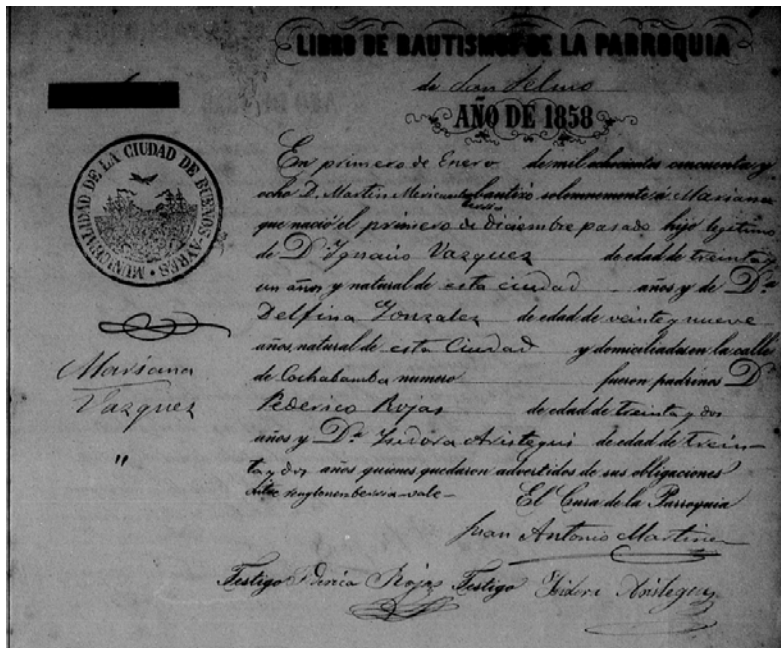 LIBRO DE BAUTISMOS DE LA PARROQUIA
de San Telmo
AÑO DE 1858
MUNICIPALIDAD DE LA CIUDAD DE BUENOS-AYRES
En primero de Enero de mil ochocientos cincuenta y
ocho D. Martin bautizó solemnemente á Mariana
que nació el primero de diciembre pasado hijo legitimo
de Dn Ignacio Vazquez de edad de treinta y
un años y natural de esta ciudad años y de Da
Delfina Gonzalez de edad de veinte y nueve
años, natural de esta Ciudad y domiciliados en la calle
de Cochabamba numero fueron padrinos Dn
Federico Rojas de edad de treinta y dos
años y Da Isidora Aristegui de edad de trein-
ta y dos años quienes quedaron advertidos de sus obligaciones
vale-
El Cura de la Parroquia
Juan Antonio Martinez
Mariana
Vazquez
"
Testigo Rojas Testigo Isidora Aristegui